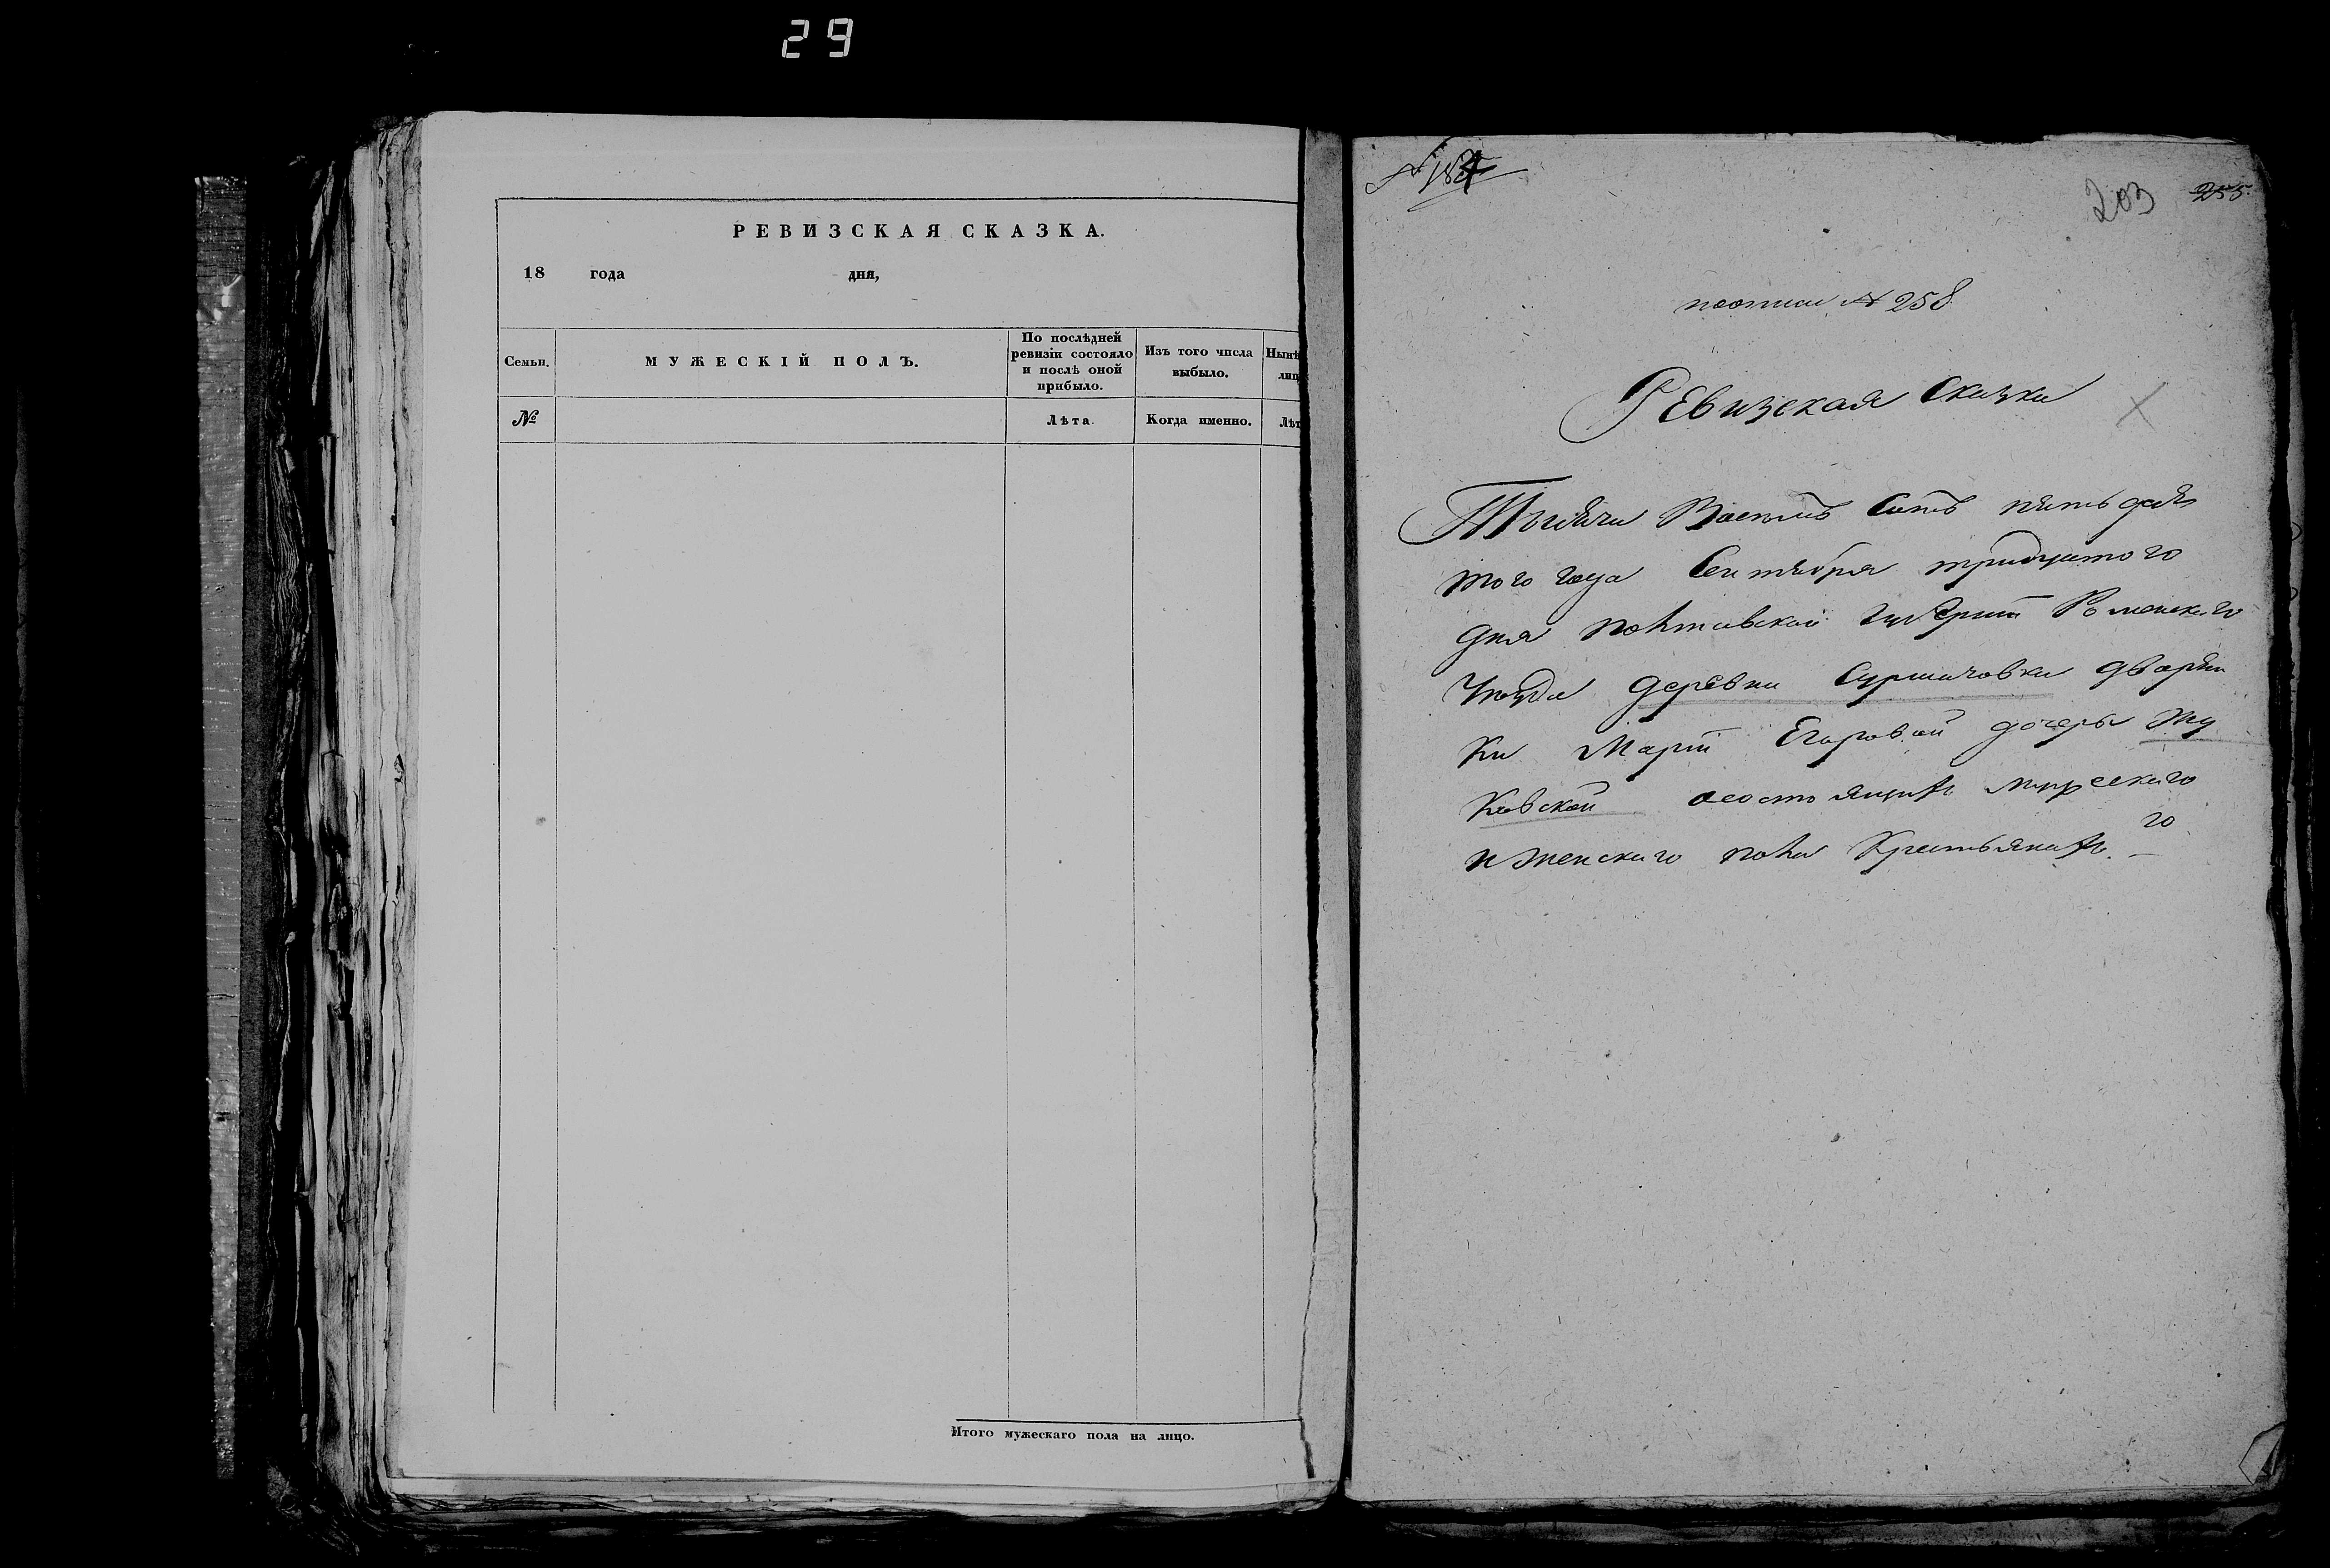 29
РЕВИЗСКАЯ СКАЗКА.
18 года дня,
Семьи. МУЖЕСКІЙ ПОЛЪ. По послѣдней ревизіи состояло и послѣ оной прибыло. Изъ того числа выбыло. Нынѣ лиц
№ Лѣта. Когда именно. Лѣт
Итого мужескаго пола на лицо.
203 255
поописи № 258
Ревизская Сказка
Тысяча Восемь Сотъ пятьдеся
того года Сентября тридцатого
дня полтавской губерніи Роменского
уезда деревни Сурмачовки дворян
Ки Маріи Егоровой дочеры Жу
Ковской осостоящихъ мужеского
и женского пола Крестьянахъ.